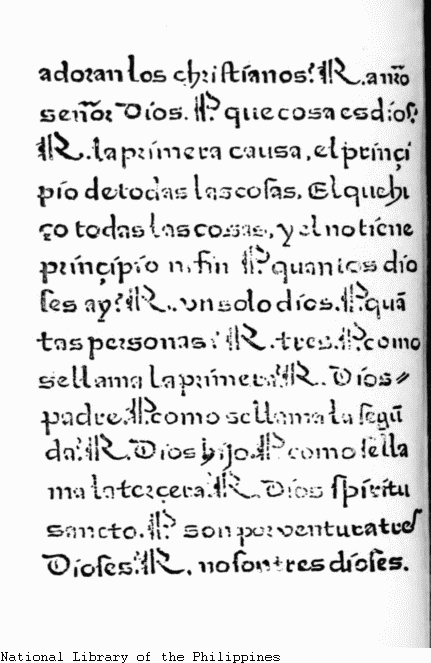 adoran los christianos? R. a nr̃o
señor Dios. P. que cosa es dios?
R. la primera causa, el prinçi
pio de todas las cosas. El que hi
ço todas las cosas, y el no tiene
prinçipio ni fin P. quantos dio
ses ay? R. un solo dios. P. quã
tas personas? R. tres. P. como
se llama la primera? R. Dios
padre. P. como se llama la segũ
da? R. Dios hijo. P. como se lla
ma la terçera? R. Dios spiritu
sancto. P. son por ventura tres
Dioses? R. no son tres dioses.
National Library of the Philippines